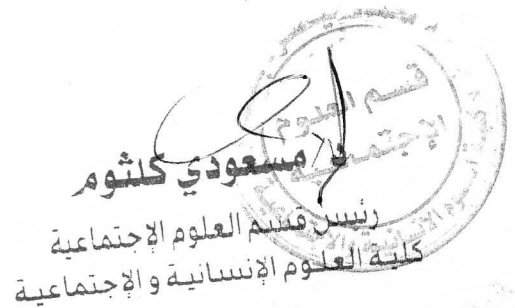 قسم العلوم
الإجتماعية
د/ مسعودي كلثوم
رئيس قسم العلوم الإجتماعية
كلية العلوم الإنسانية و الإجتماعية